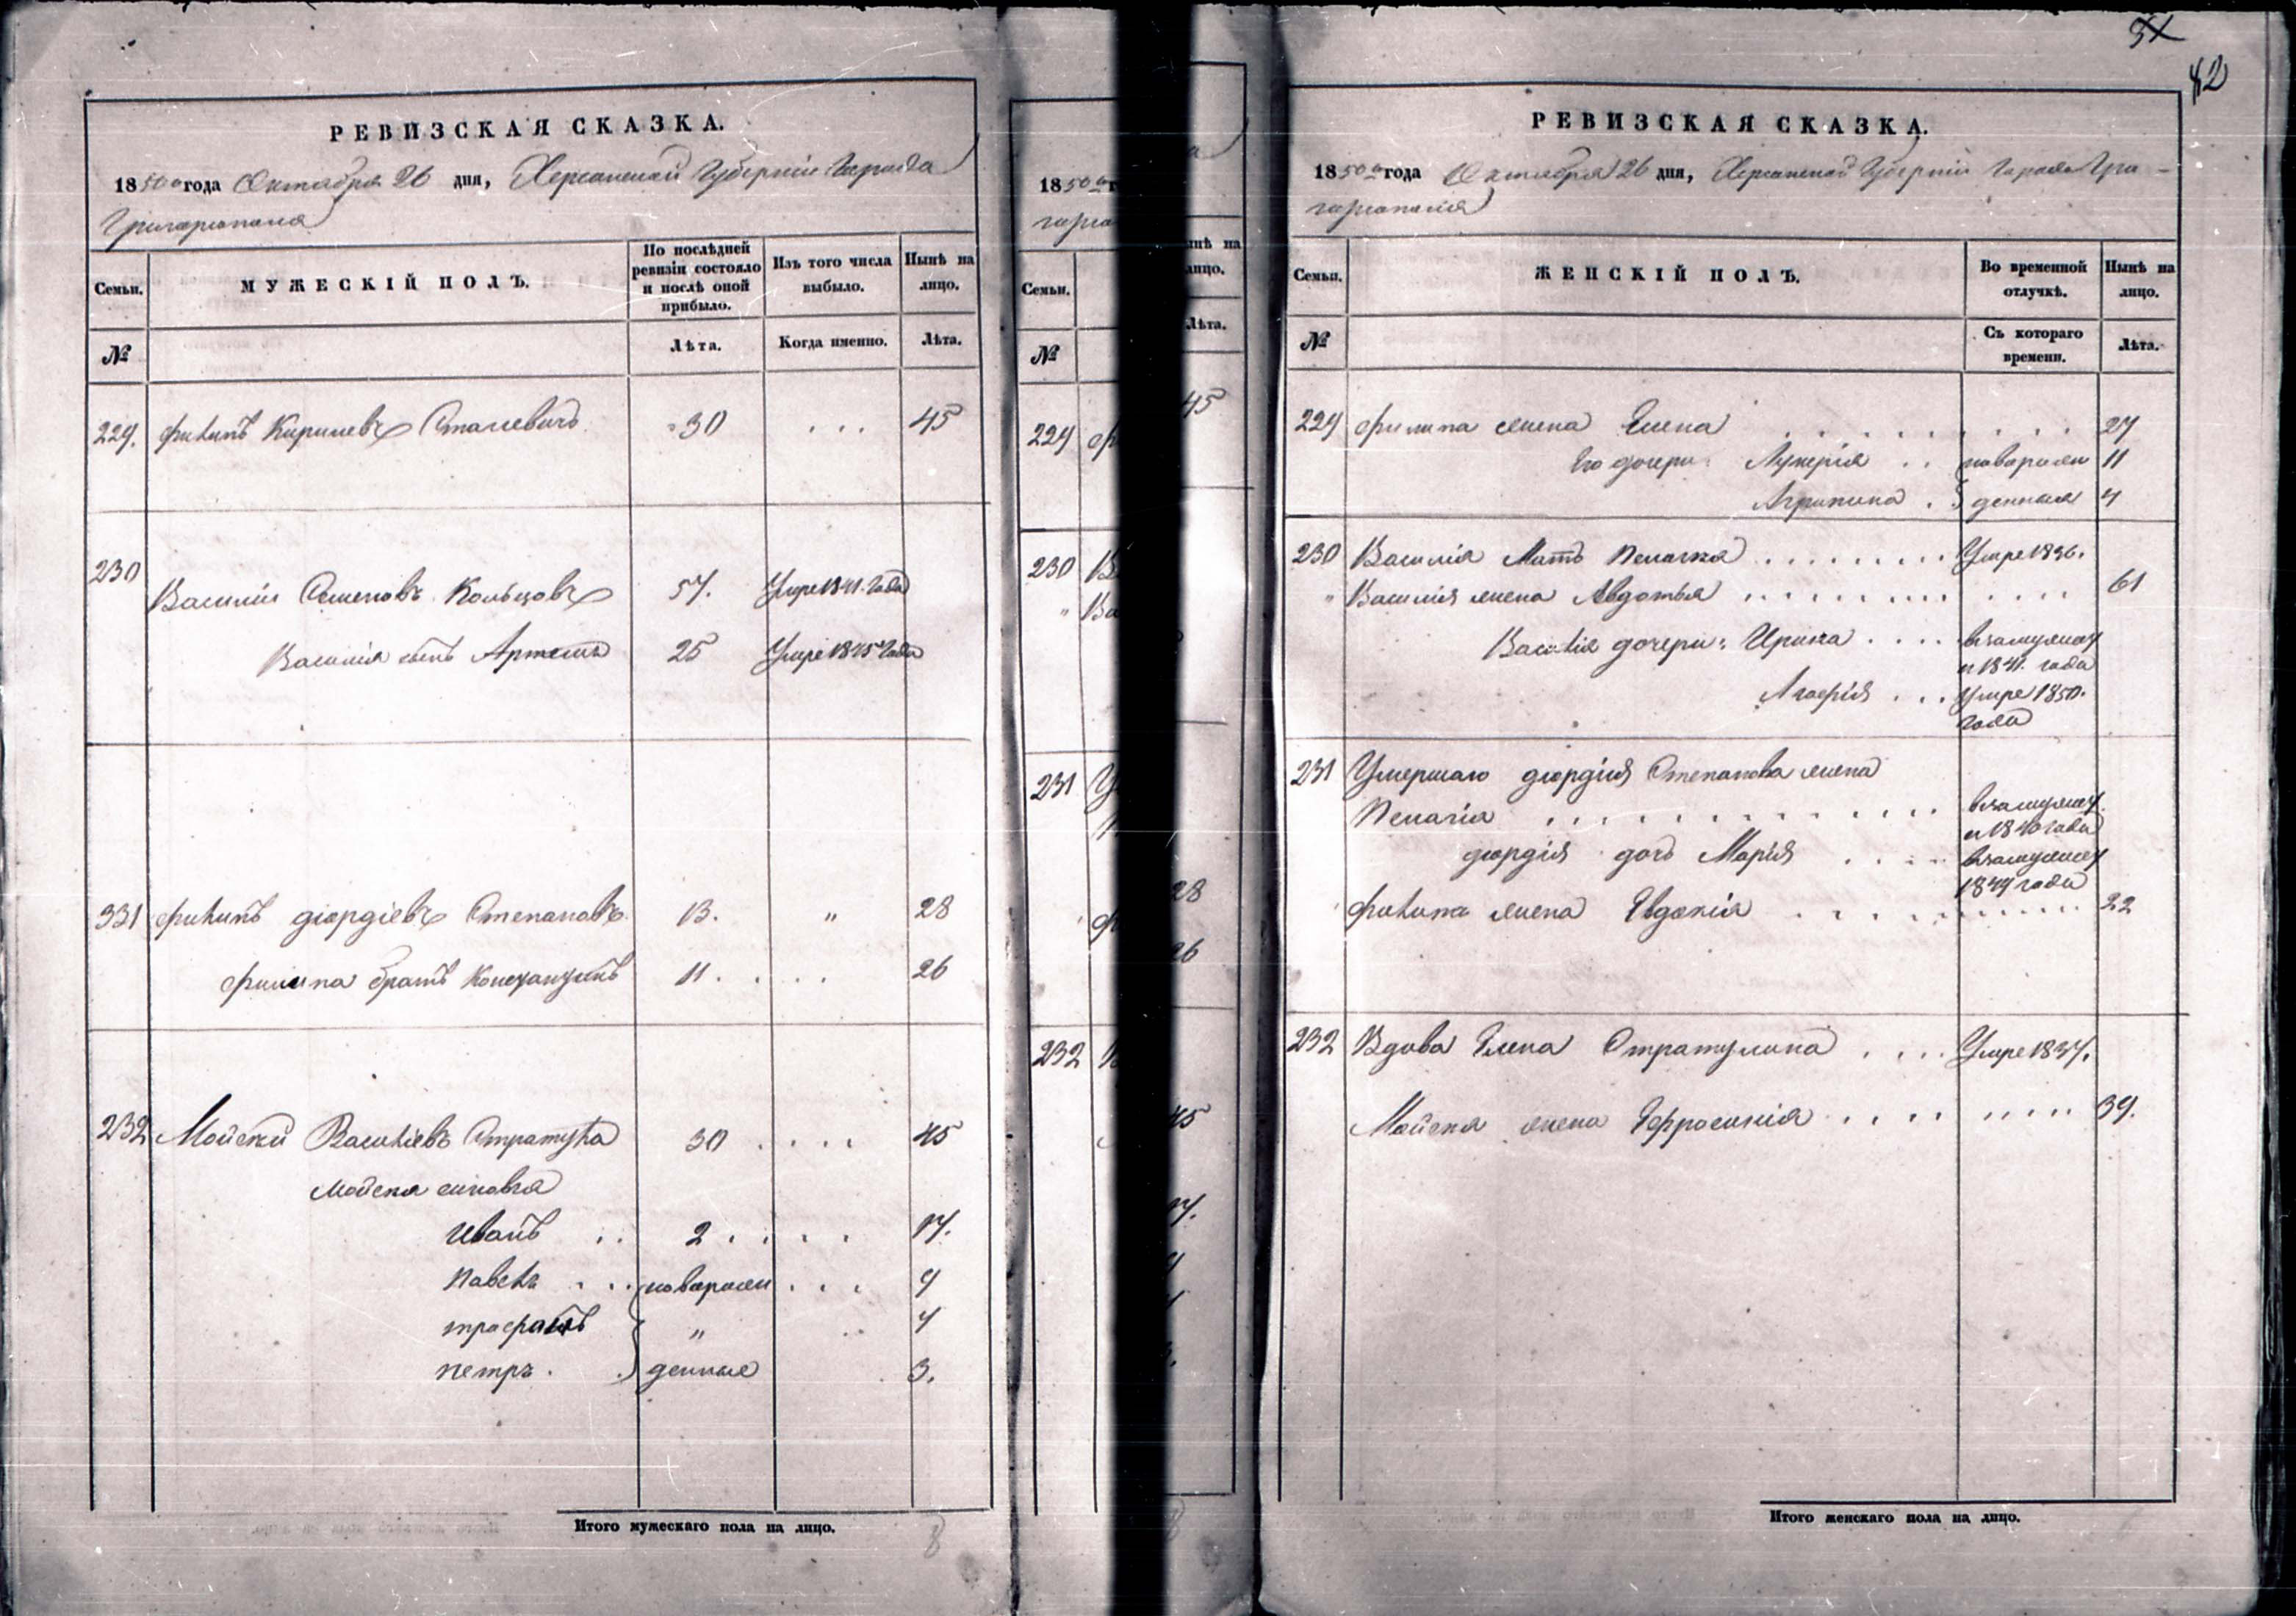 РЕВИЗСКАЯ СКАЗКА.
1850 года Октября 26 дня, Херсонской Губернии Города
Григориополя
Семьи.
МУЖЕСКІЙ ПОЛЪ.
По послѣдней ревизіи состояло и послѣ оной прибыло.
Изъ того числа выбыло.
Нынѣ на лицо.
№
Лѣта.
Когда именно.
Лѣта.
229. Филипъ Кирилевъ 30 ... 45
230
Василій Семеновъ Кольцовъ 57. Умре 1841. года
Василія сынъ Артемъ 25 Умре 1845 года
331 Филипъ Гіордіевъ Степановъ 13. " 28
Филипа братъ Констандинъ 11. ... 26
232 Мойсей Василіевъ Стратула 30 .... 45
Мойсея синовья
Иванъ .. 2 .... 17.
Павелъ ... новорожденные ... 9
" 4
Петръ . 3.
1850 г
Семьи.
№
229
230
"
231
232
нынѣ на
лицо.
Лѣта.
45
28
26
45
17.
31
42
РЕВИЗСКАЯ СКАЗКА.
1850 года Октября 26 дня, Херсонской Губерніи Города Гри-
гориополя
Семьи.
ЖЕНСКІЙ ПОЛЪ.
Во временной отлучкѣ.
Нынѣ на лицо.
№
Съ котораго времени.
Лѣта.
229 Филипа жена Елена 27
Его дочери: Лукерія .. новорож 11
Агрипина . денные 4
230 Василія Мать Пелагея ........ Умре 1836.
" Василія жена Авдотья ........ .... 61
Василія дочери: Ирина .... взамужест
въ 1841. года
... Умре 1850.
года
231 Умершаго Гіордія Степанова жена
Пелагія взамужест
въ 1840 года
Гіордія дочь Марія .... взамужест
1849 года
Филипа жена Евдокія 22
232 Вдова Елена Стратулина .... Умре 1837.
Мойсея жена Ефросинія .... .... 39.
Итого мужескаго пола на лицо.
8
Итого женскаго пола на лицо.